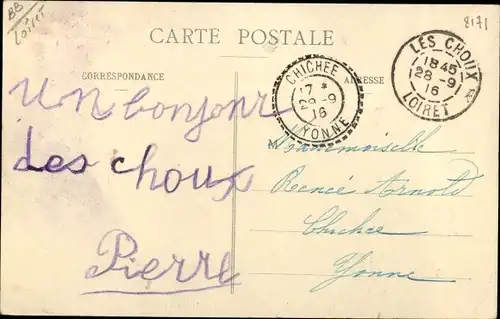 BB
Loiret
8171
CARTE POSTALE
CORRESPONDANCE
ADRESSE
CHICHEE
17 *
29 -9
16
YONNE
LES CHOUX
18 45
28 -9
16
LOIRET
Un bonjour
des choux
Pierre
Mademoiselle
Renée Arnold
Chichee
Yonne